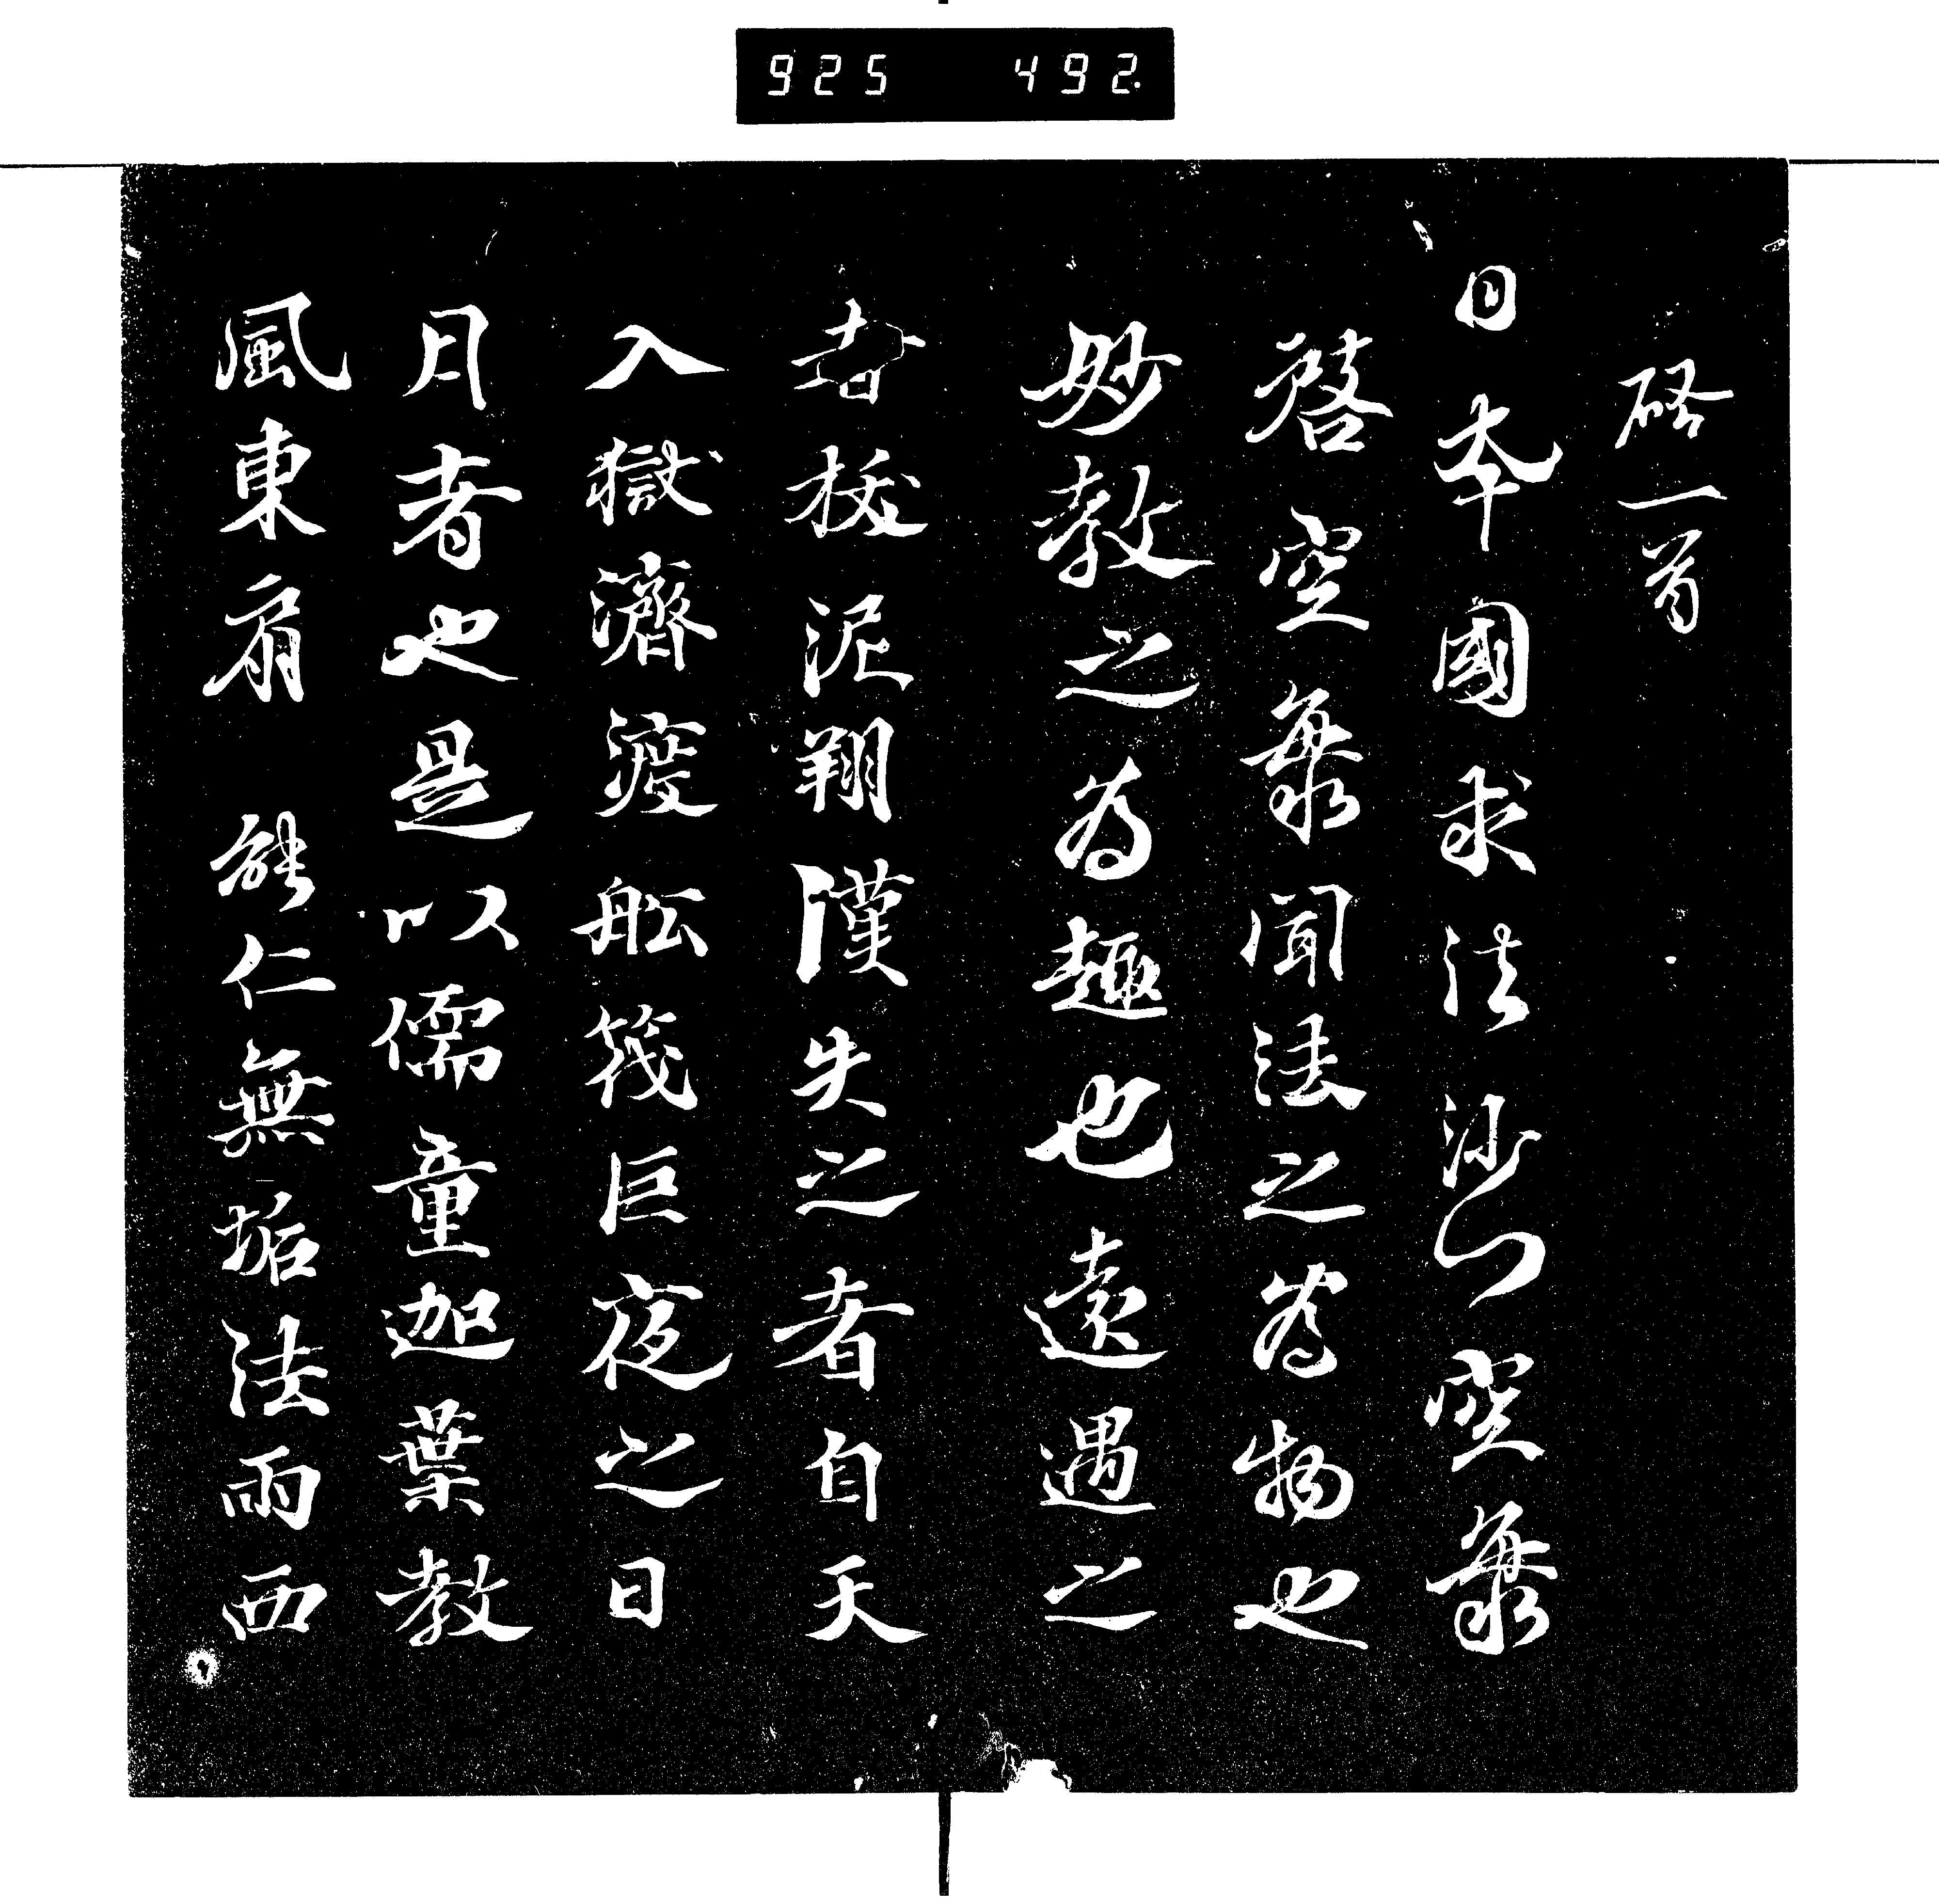 925 492.
啓一首
日本國求法沙門空海
啓空海聞法之為物也
妙教之為趣也遠遇之
者拔泥翔漢失之者自天
入獄濟渡舩筏巨夜之日
月者也是以儒童迦葉教
風東扇 能仁無垢法雨西